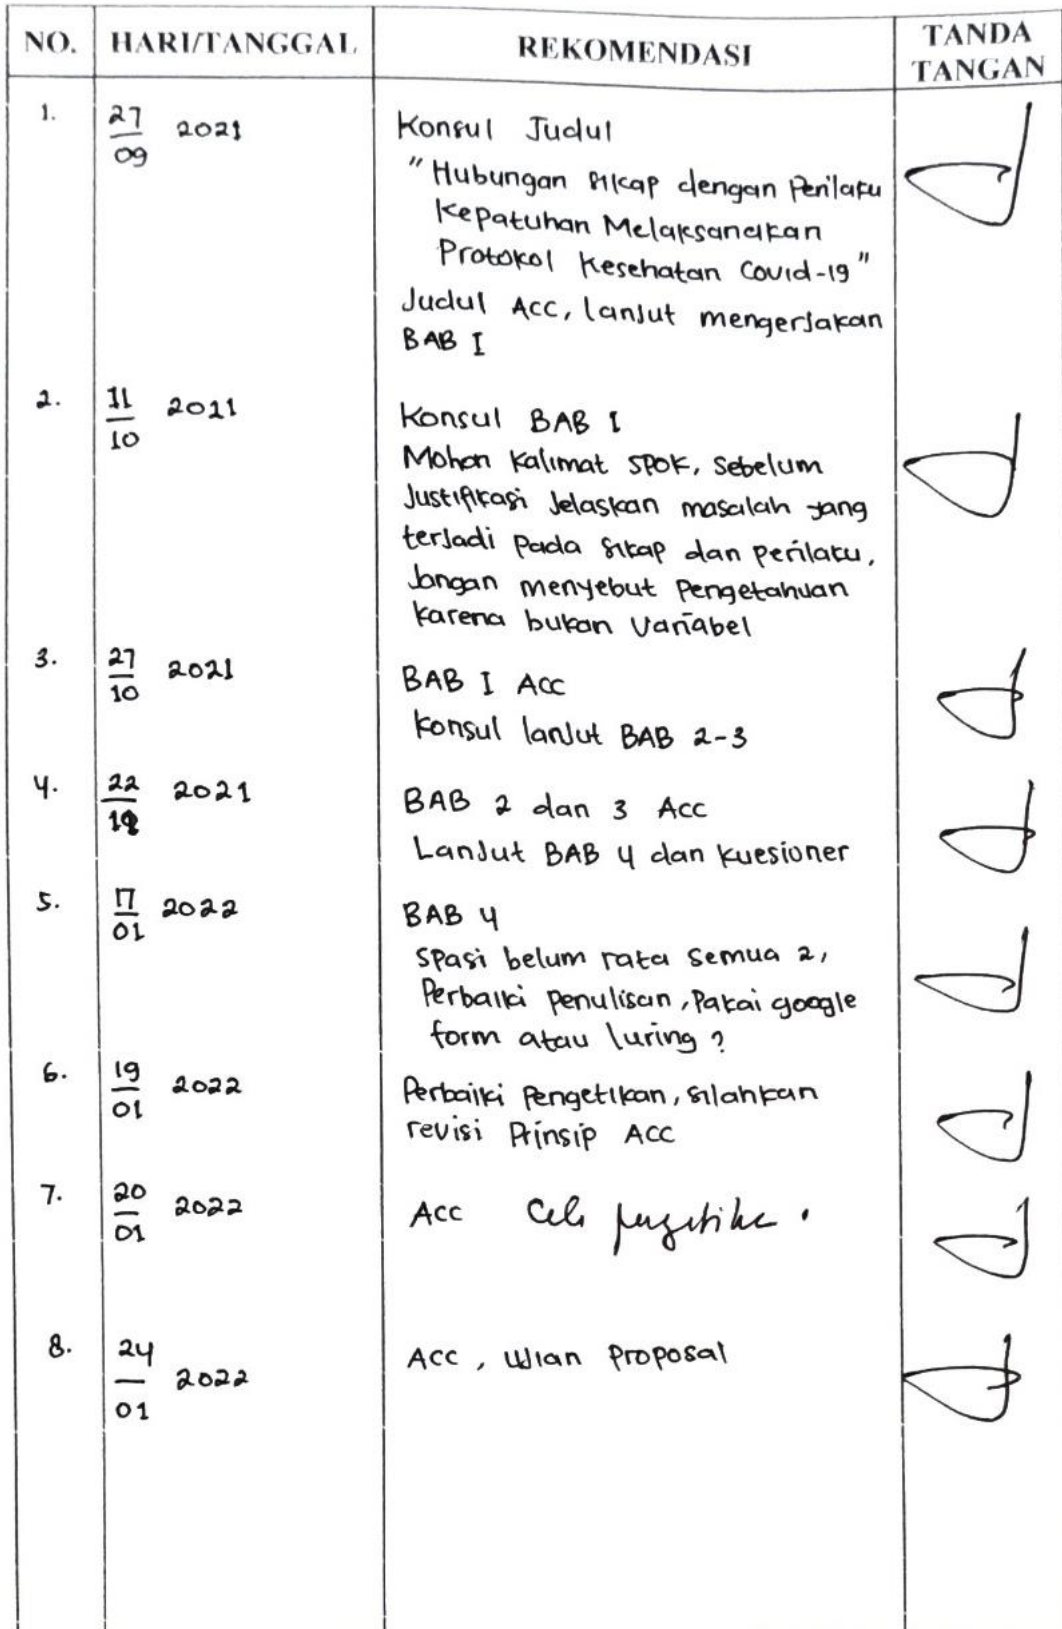 NO. HARI/TANGGAL REKOMENDASI TANDA TANGAN
1. 27/09 2021 Konsul Judul
"Hubungan sikap dengan Perilaku
Kepatuhan Melaksanakan
Protokol Kesehatan Covid-19"
Judul Acc, lanjut mengerjakan
BAB I
2. 11/10 2021 Konsul BAB I
Mohon Kalimat SPOK, Sebelum
Justifikasi Jelaskan masalah yang
terjadi pada sikap dan perilaku,
Jangan menyebut Pengetahuan
karena bukan Variabel
3. 27/10 2021 BAB I Acc
Konsul lanjut BAB 2-3
4. 22/ 2021 BAB 2 dan 3 Acc
Lanjut BAB 4 dan kuesioner
5. 17/01 2022 BAB 4
Spasi belum rata semua 2,
Perbaiki penulisan, Pakai google
form atau luring ?
6. 19/01 2022 Perbaiki Pengetikan, silahkan
revisi Prinsip ACC
7. 20/01 2022 ACC Cek
8. 24/01 2022 ACC, Ujian Proposal